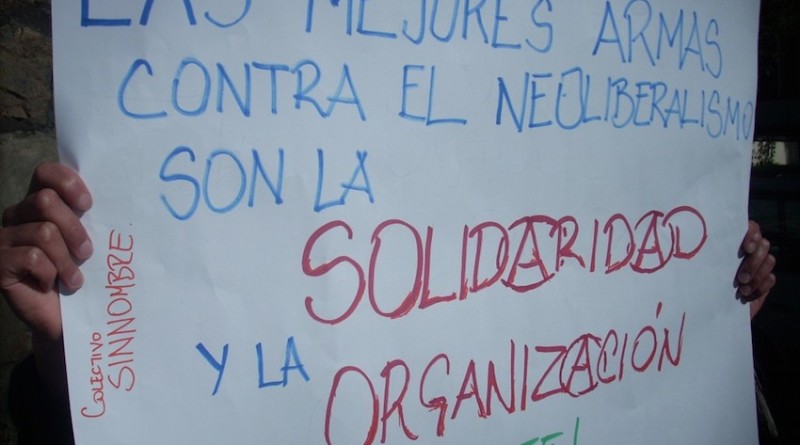 LAS MEJORES ARMAS
CONTRA EL NEOLIBERALISMO
SON LA
SOLIDARIDAD
Y LA ORGANIZACIÓN
COLECTIVO
SINNOMBRE.